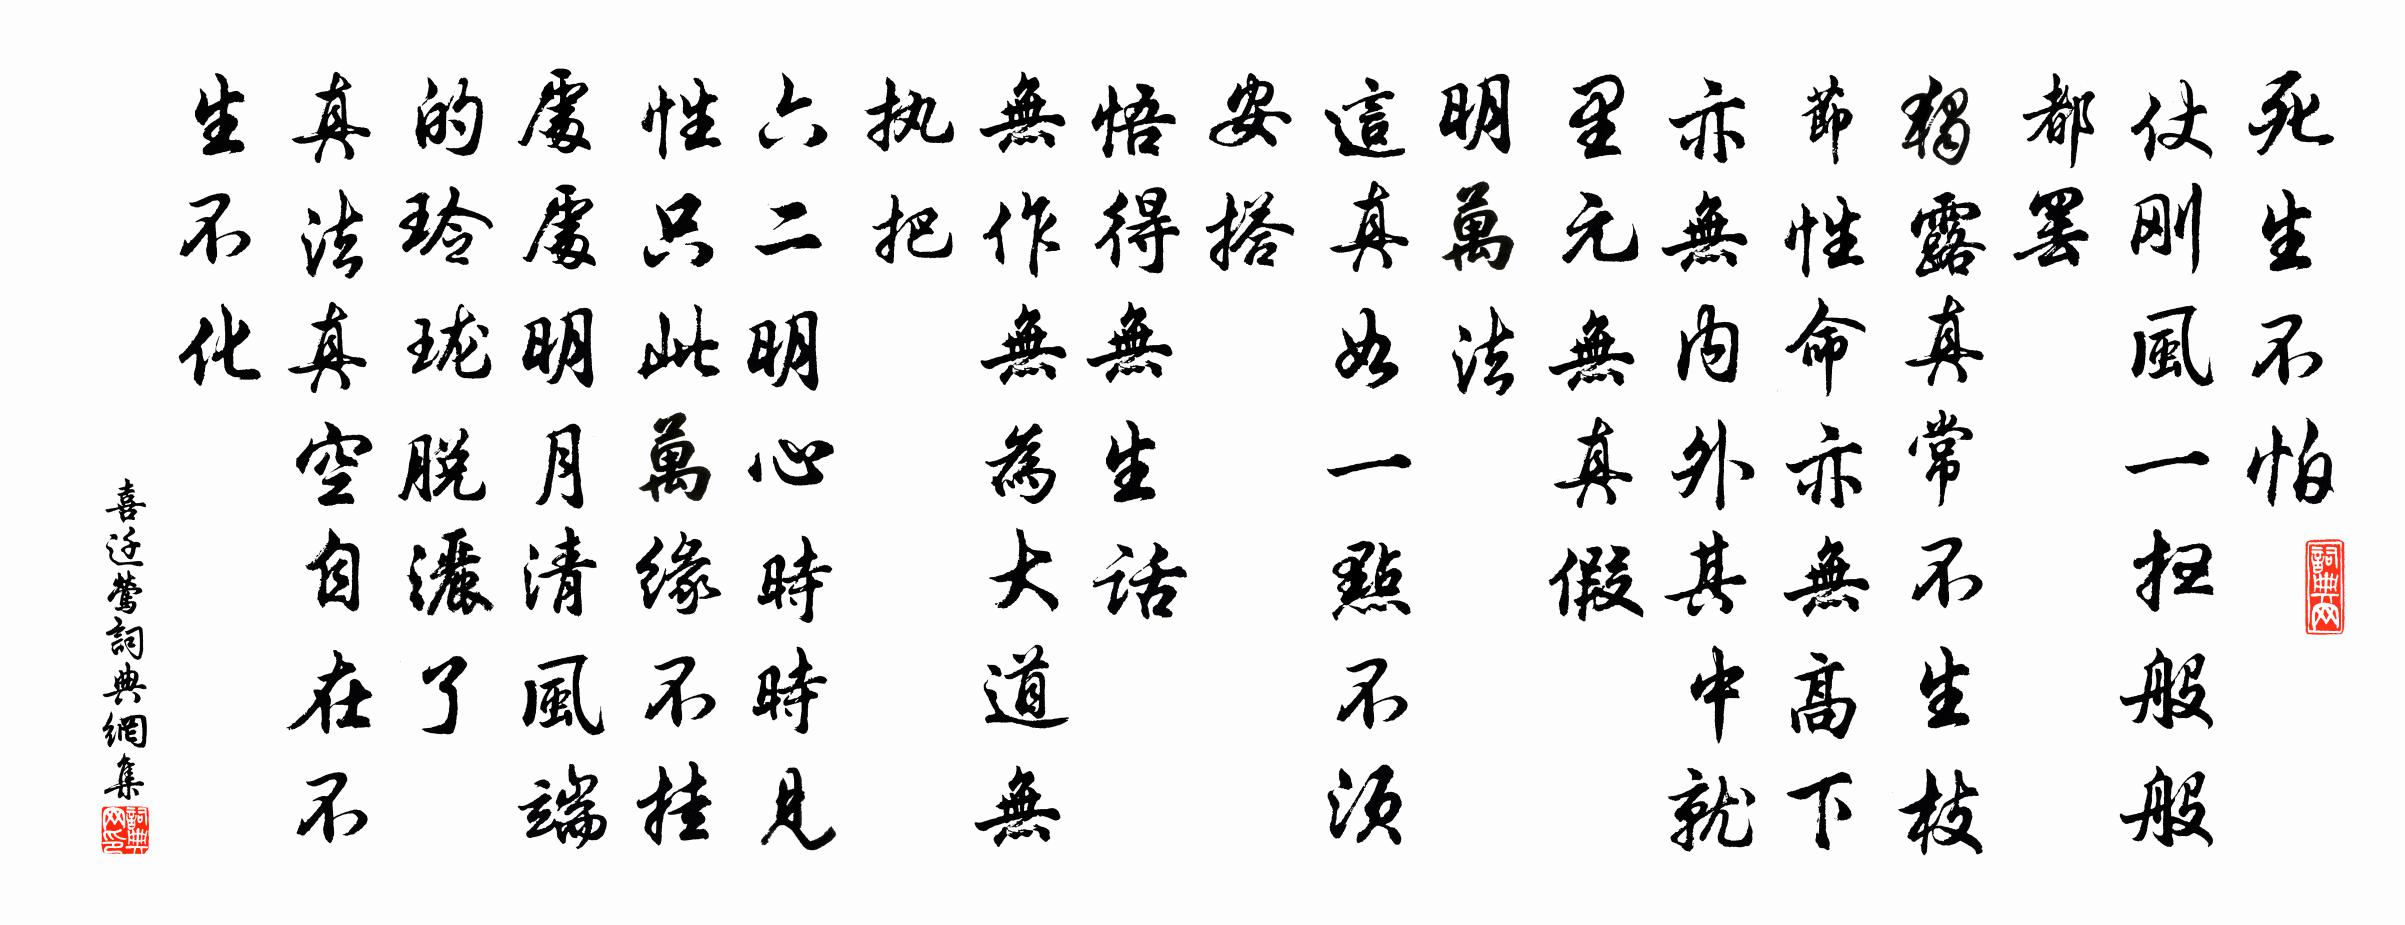 死生不怕
仗刚風一扫般般
都罢
獨露真常不生枝
節性命亦無高下
亦無内外其中就
里元無真假
明萬法
這真如一點不須
安搭
悟得無生话
無作無為大道無
执把
六二明心時時見
性只此萬缘不挂
處處明月清風端
的玲珑脱灑了
真法真空自在不
生不化
喜迁鶯詞典網集
詞典网
詞典网印